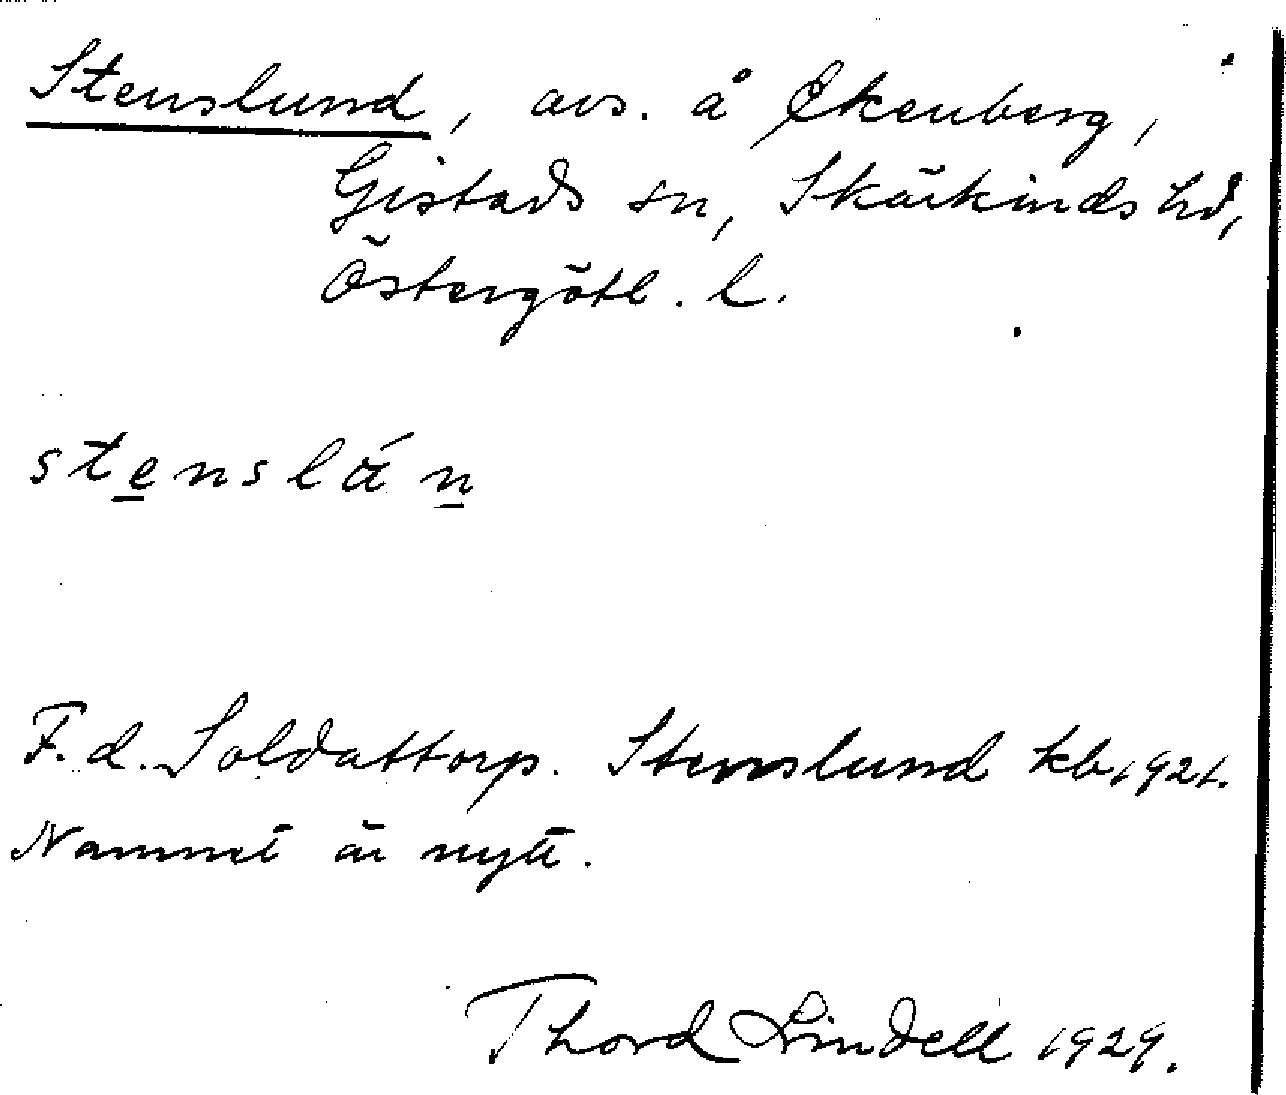 Stenslund, avs. å Ekenberg,
Gistads sn, Skärkinds hd,
Östergötl. l.
stenslán
F.d. Soldattorp. Stenslund kb, 1921.
Namnet är nytt.
Thord Lindell 1929.